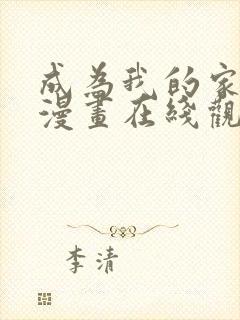 成為我的家
漫畫在綫觀
李清